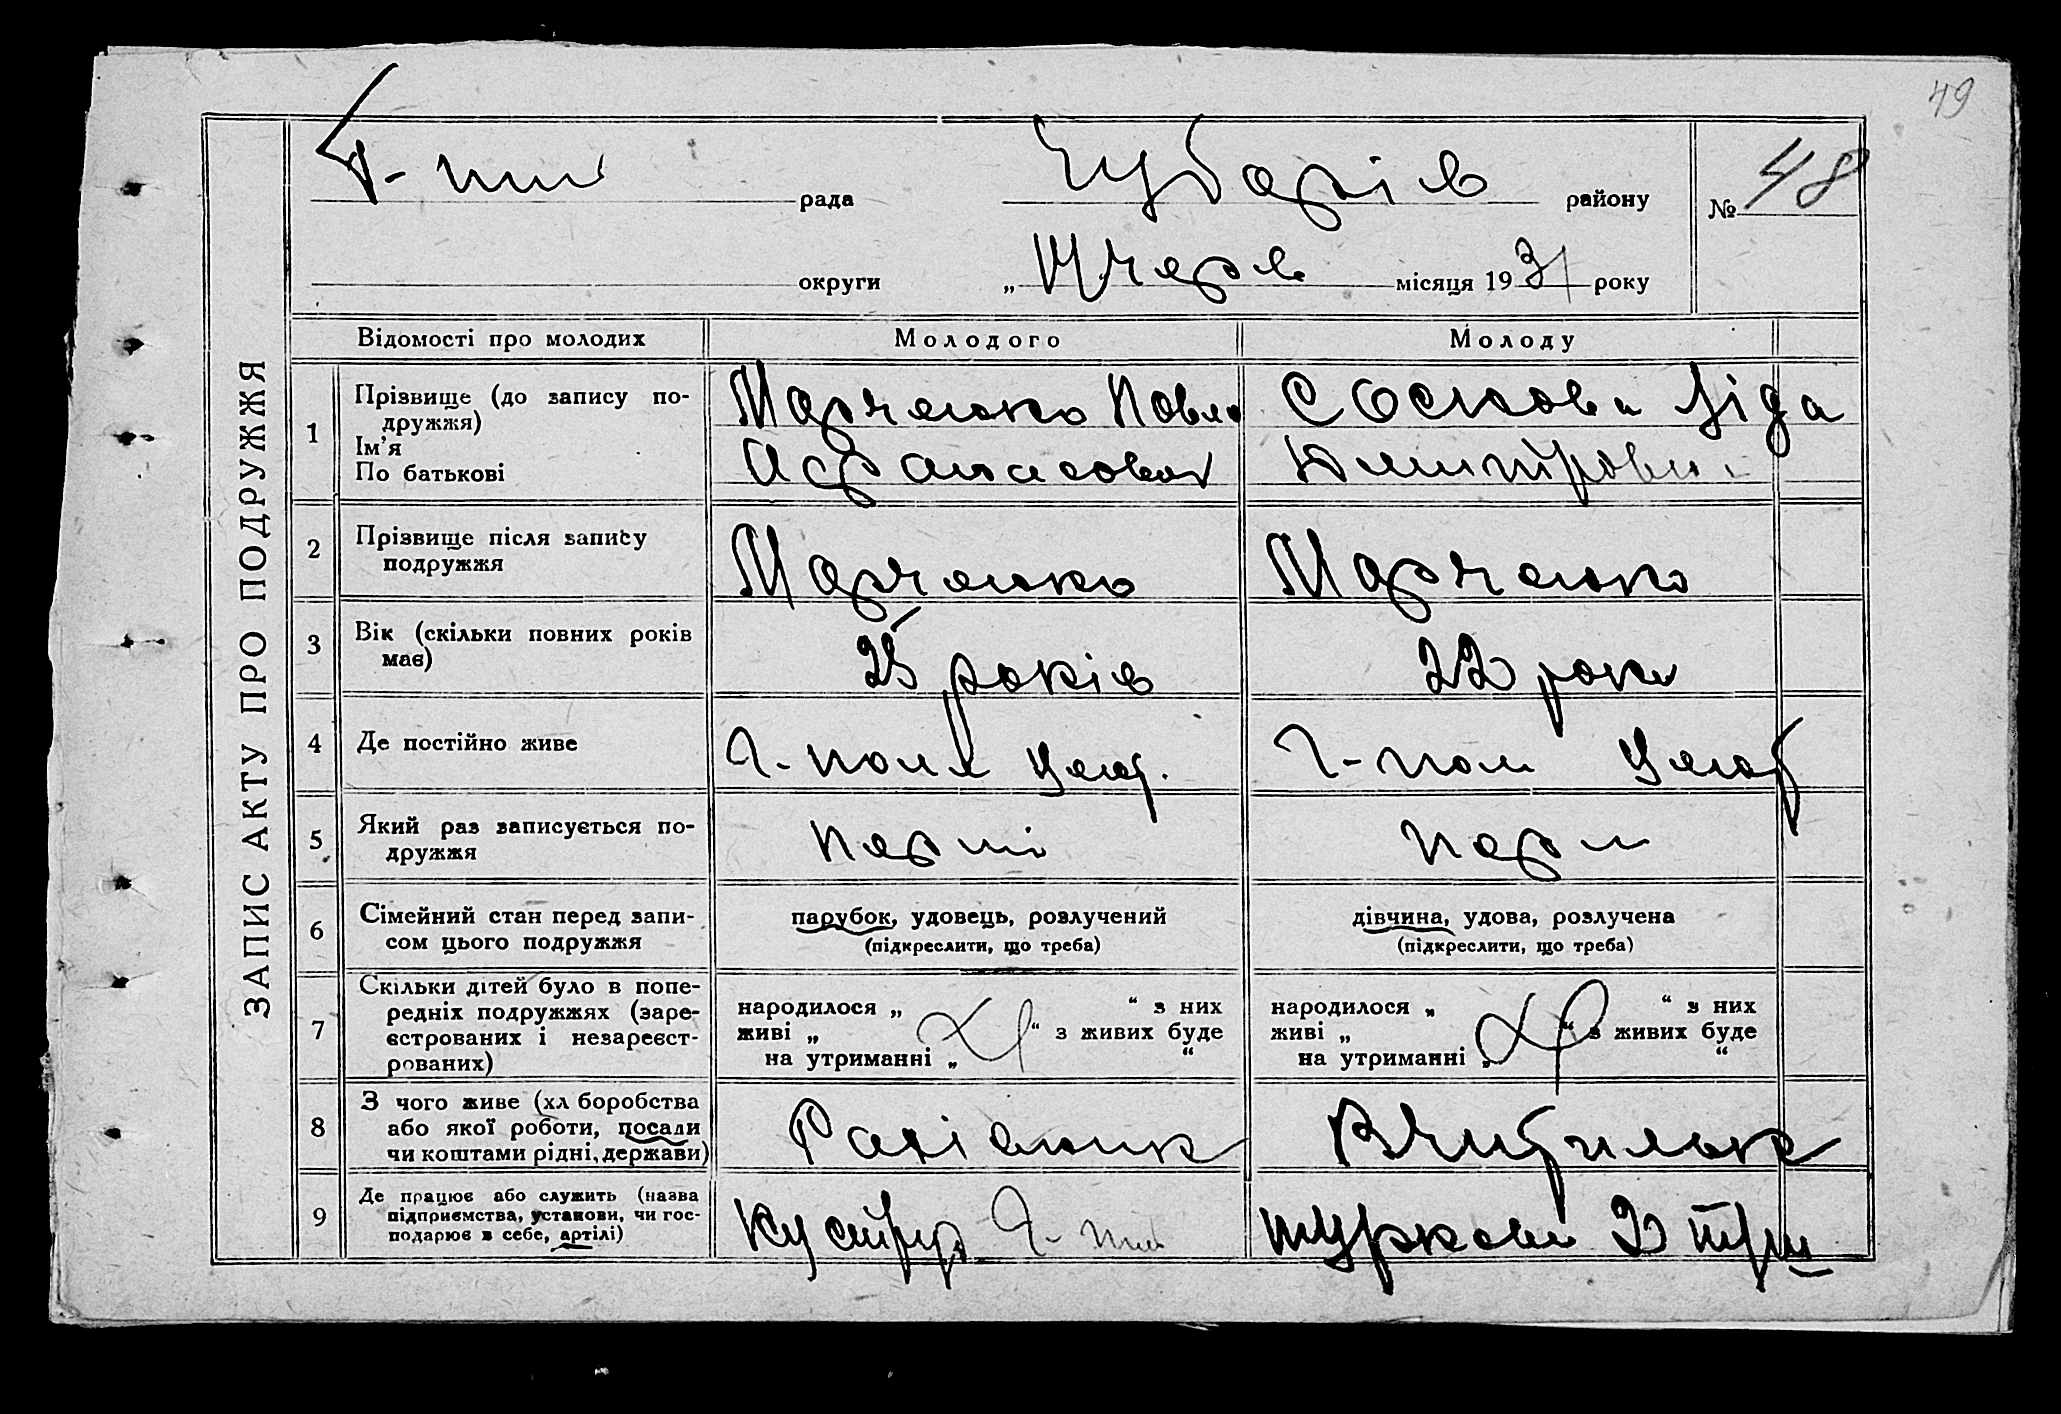 49
Г-пил рада Чубарів району № 48
округи „ місяця 1931 року
ЗАПИС АКТУ ПРО ПОДРУЖЖЯ
Відомості про молодих Молодого Молоду
1 Прізвище (до запису по-
дружжя)
Ім’я
По батькові
Марченко Павло
Афанасович
Соснова Ліда
Дмитровна
2 Прізвище після запису
подружжя
Марченко Марченко
3 Вік (скільки повних років
має)
25 років 22 роки
4 Де постійно живе
Г-поля Центр. Г-поля Центр
5 Який раз записується по-
дружжя
перший перш
6 Сімейний стан перед запи-
сом цього подружжя
парубок, удовець, розлучений
(підкреслити, що треба)
дівчина, удова, розлучена
(підкреслити, що треба)
7 Скільки дітей було в попе-
редніх подружжях (заре-
єстрованих і незареєст-
рованих)
народилося „ “ з них
живі „ “ з живих буде
на утриманні „ “
народилося „ “ з них
живі „ “ з живих буде
на утриманні „ “
8 З чого живе (хл боробства
або якої роботи, посади
чи коштами рідні, держави)
Вчителька
9 Де працює або служить (назва
підприємства, установи, чи гос-
подарює в себе, артілі)